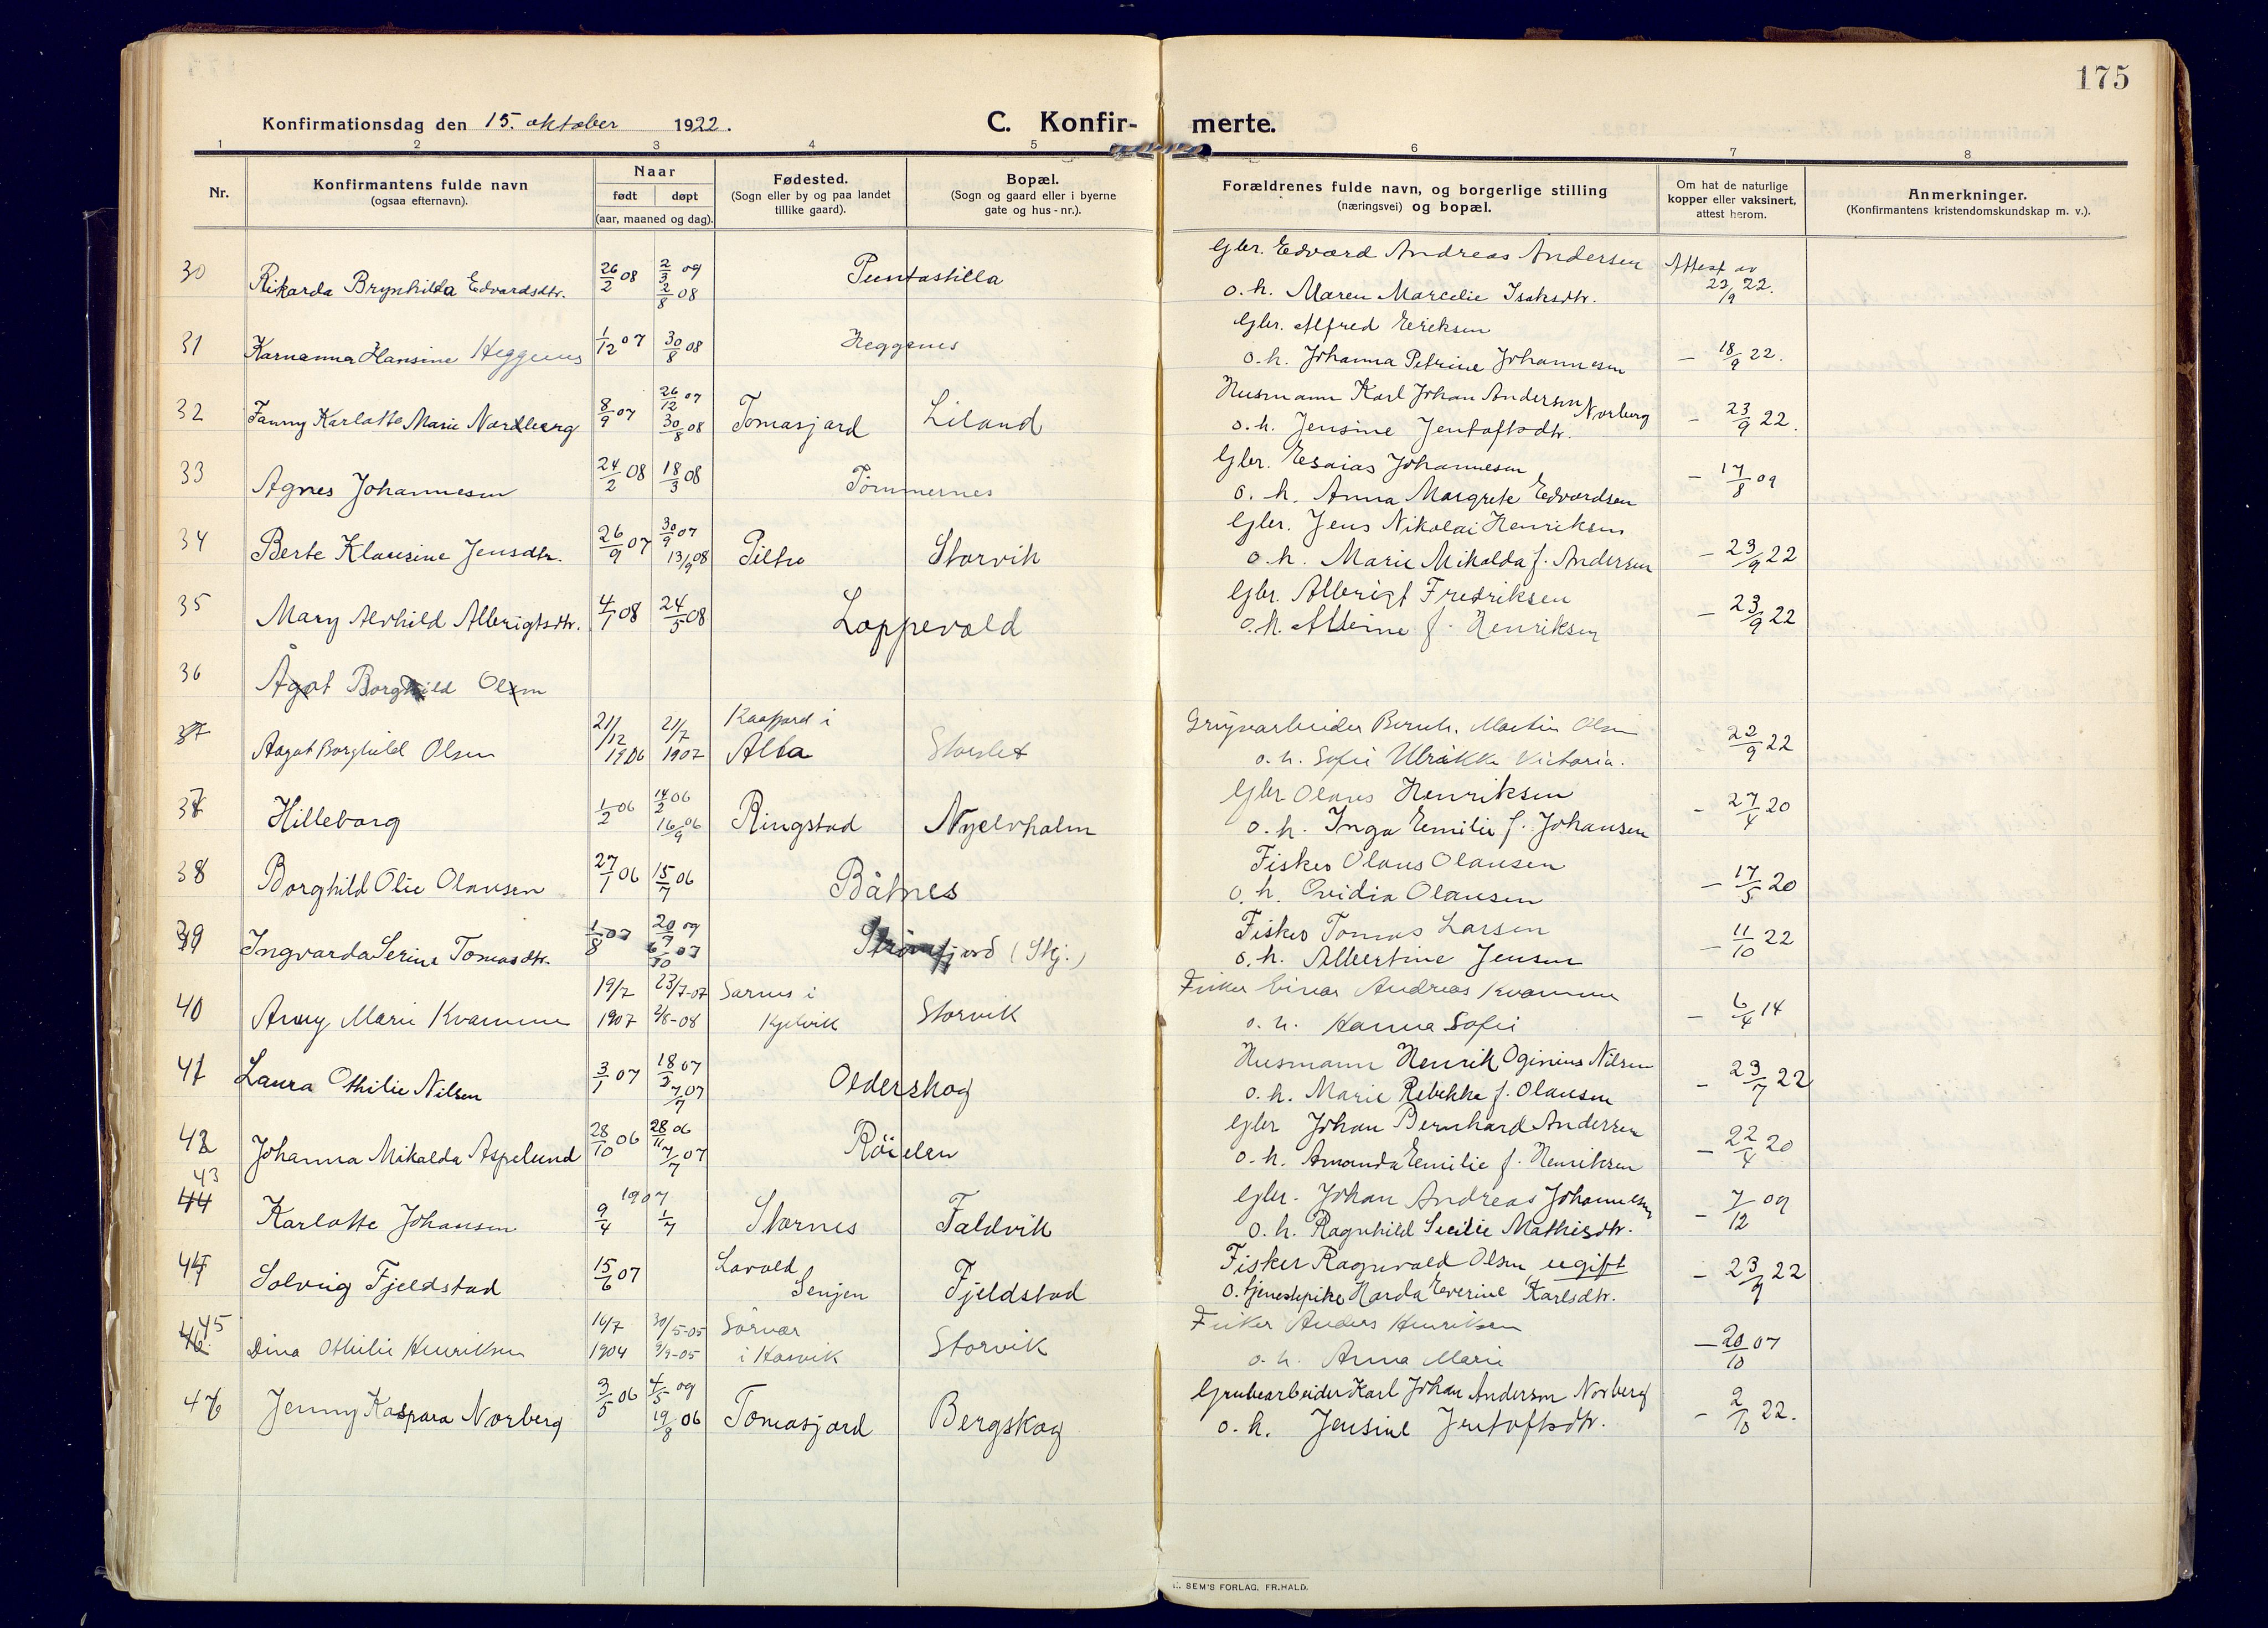 175
Konfirmationsdag den 15. oktober 1922.
C. Konfir- merte.
1 2 3 4 5 6 7 8
Nr.
Konfirmantens fulde navn
(ogsaa efternavn).
Naar
født døpt
(aar, maaned og dag).
Fødested.
(Sogn eller by og paa landet
tillike gaard).
Bopæl.
(Sogn og gaard eller i byerne
gate og hus-nr.).
Forældrenes fulde navn, og borgerlige stilling
(næringsvei) og bopæl.
Om hat de naturlige
kopper eller vaksinert,
attest herom.
Anmerkninger.
(Konfirmantens kristendomskundskap m. v.).
30 Rikarda Brynhilda Edvardsdtr. 26/2 08 2/3 09 2/8 08 Puntastilla
Gbr. Edvard Andreas Andersen
o. h. Maren Marcelie Isaksdtr.
Attest av 22/9 22.
31 Karnanna Hansine Heggenes 1/12 07 30/8 08 Heggenes
Gbr. Alfred Eriksen
o. h. Johanna Petrine Johannesen
– 18/9 22.
32 Fanny Karlotte Marie Nordberg 8/9 07 26/12 07 30/8 08 Tomasjord Liland
Husmann Karl Johan Andersen Norberg
o. h. Jensine Jentoftsdtr.
– 23/9 22.
33 Agnes Johannesen 24/2 08 18/3 08 Tömmernes
Gbr. Esaias Johannesen
o. h. Anna Margrete Edvardsen
– 17/8 09
34 Berte Klausine Jensdtr. 26/9 07 30/9 07 13/9 08 Piltro Storvik
Gbr. Jens Nikolai Henriksen
o. h. Marie Mikalda f. Andersen
– 23/9 22
35 Mary Alvhild Albrigtsdtr. 4/1 08 24/5 08 Loppevold
Gbr. Albrigt Fredriksen
o. h. Alteine f. Henriksen
– 23/9 22
36 Ågot Borghild Olsen
37 Aagot Borghild Olsen 21/12 1906 21/7 1907 Kaafjord i Alta Storslet
Gruvarbeider Bernh. Martin Olsen
o. h. Sofie Ulrikke Victoria.
22/9 22
37 Hilleborg 1/2 06 14/2 06 16/9 06 Ringstad Nyelvholm
Gbr Olaus Henriksen
o. h. Inga Emilie f. Johansen
– 27/4 20
38 Borghild Olie Olausen 27/1 06 15/7 06 Båtnes
Fisker Olaus Olausen
o. h. Ovidia Olausen
– 17/5 20
39 Ingvarda Serine Tomasdtr. 1/8 07 20/9 09 6/10 07 Strömfjord (Skj.)
Fisker Tomas Larsen
o. h. Albertine Jensen
– 11/10 22
40 Anny Marie Kvamme 19/7 1907 23/7-07 2/8-08 Sarnes i Kjelvik Storvik
Fisker Einar Andreas Kvamme
o. h. Hanna Sofie
– 6/4 14
41 Laura Othilie Nilsen 3/1 07 18/2 07 7/7 07 Olderskog
Husmann Henrik Oginius Nilsen
o. h. Marie Rebekka f. Olausen
– 23/7 22
42 Johanna Mikalda Aspelund 28/10 06 28/11 06 7/7 07 Röielen
Gbr Johan Bernhard Andersen
o. h. Amanda Emilie f. Henriksen
– 22/4 20
43
44 Karlotte Johansen 1907 9/4 1/7 Stornes Faldvik
Gbr. Johan Andreas Johannesen
o. h. Ragnhild Secilie Mathisdtr.
– 7/12 09
44 Solveig Fjeldstad 15/6 07 Lavold Senjen Fjeldstad
Fisker Ragnvald Olsen, ugift
o. tjenestepike Harda Everine Karlsdtr.
– 23/9 22
45
46. Dina Othilie Henriksen 16/7 1904 30/5-05 3/9-05 Sörvær i Hasvik Storvik
Fisker Anders Henriksen
o. h. Anna Marie
– 20/10 07
46 Jenny Kaspara Norberg 3/5 06 4/5 09 19/8 06 Tomasjord Bergskog
Grubearbeider Karl Johan Andersen Norberg
o. h. Jensine Jentoftsdtr.
– 2/10 22.
SEM'S FORLAG, FR.HALD.